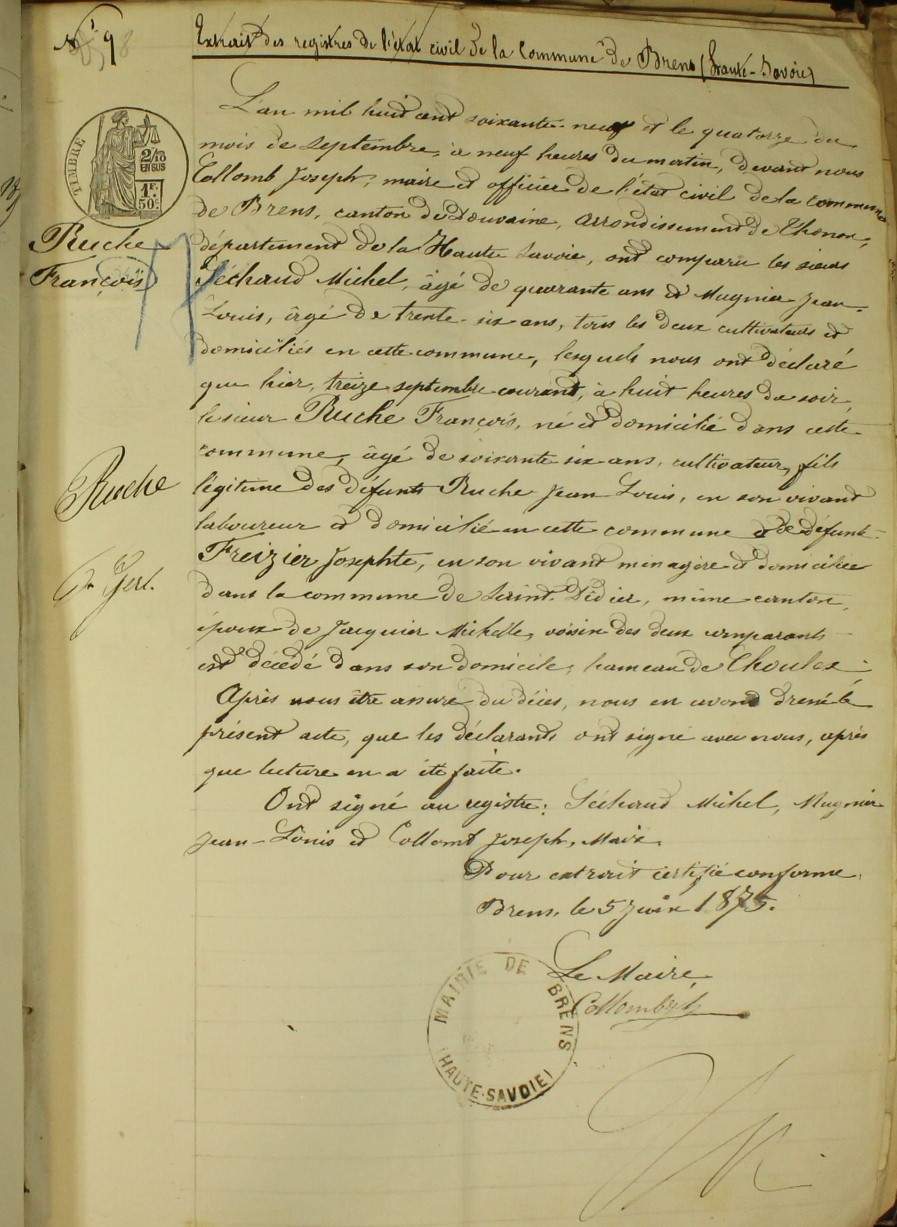 Extrait des registres de l'état civil de la Commune de Brens (Haute-Savoie)
TIMBRE
2/10
EN SUS
1 F.
50 C.
Ruche
François
L'an mil huit cent soixante-neuf et le quatorze du
mois de septembre, à neuf heures du matin, devant nous
Collomb Joseph, maire et officier de l'état civil de la commune
de Brens, canton de Douvaine, arrondissement de Thonon,
département de la Haute Savoie, ont comparu les sieurs
Séchaud Michel, âgé de quarante ans et Mugnier Jean-
Louis, âgé de trente-six ans, tous les deux cultivateurs et
domiciliés en cette commune, lesquels nous ont déclaré
que hier, treize septembre courant, à huit heures du soir,
le sieur Ruche François, né et domicilié dans cette
commune, âgé de soixante six ans, cultivateur, fils
légitime des défunts Ruche Jean Louis, en son vivant
laboureur et domicilié en cette commune et de défunte
Freizier Josephte, en son vivant ménagère et domiciliée
dans la commune de Saint Didier, même canton,
époux de Jacquier Michelle, voisin des deux comparants
est décédé dans son domicile, hameau de Choulex.
Après nous être assuré du décès, nous en avons dressé le
présent acte, que les déclarants ont signé avec nous, après
que lecture en a été faite.
Ont signé au registre: Séchaud Michel, Mugnier
Jean-Louis et Collomb Joseph, Maire.
Pour extrait certifié conforme,
Brens, le 5 Juin 1875.
Le Maire,
Collomb
MAIRIE DE BRENS
(HAUTE-SAVOIE)
Ruche